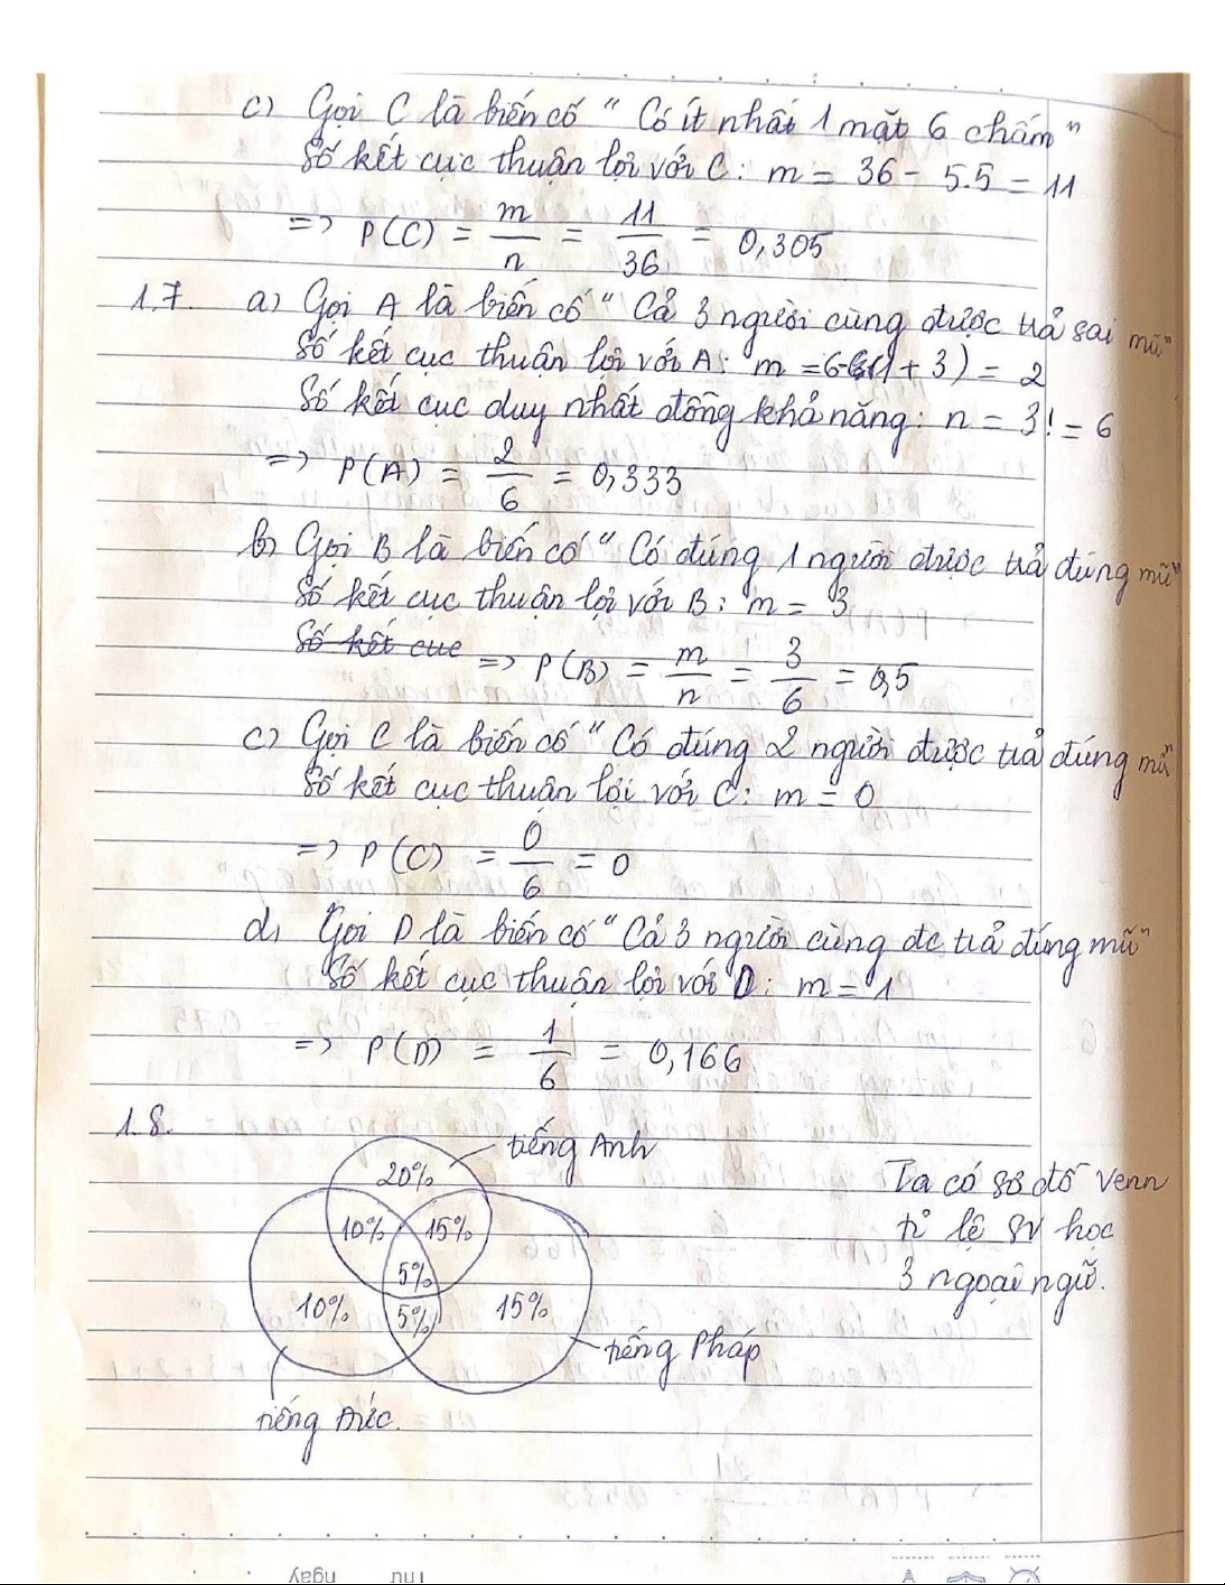 c) Gọi C là biến cố " Có ít nhất 1 mặt 6 chấm "
Số kết cục thuận lợi với C: m = 36 - 5.5 = 11
=> P(C) = m/n = 11/36 = 0,305
1.7. a) Gọi A là biến cố " Cả 3 người cùng được trả sai mũ"
Số kết cục thuận lợi với A: m = 6-(1+3) = 2
Số kết cục duy nhất đồng khả năng: n = 3! = 6
=> P(A) = 2/6 = 0,333
b) Gọi B là biến cố " Có đúng 1 người được trả đúng mũ"
Số kết cục thuận lợi với B: m = 3
Số kết cục => P(B) = m/n = 3/6 = 0,5
c) Gọi C là biến cố " Có đúng 2 người được trả đúng mũ"
Số kết cục thuận lợi với C: m = 0
=> P(C) = 0/6 = 0
d) Gọi D là biến cố " Cả 3 người cùng đc trả đúng mũ"
Số kết cục thuận lợi với D: m = 1
=> P(D) = 1/6 = 0,166
1.8.
tiếng Anh
20%
Ta có sơ đồ Venn
10% 15%
tỉ lệ SV học
5%
3 ngoại ngữ.
10% 5% 15%
tiếng Pháp
tiếng Đức.